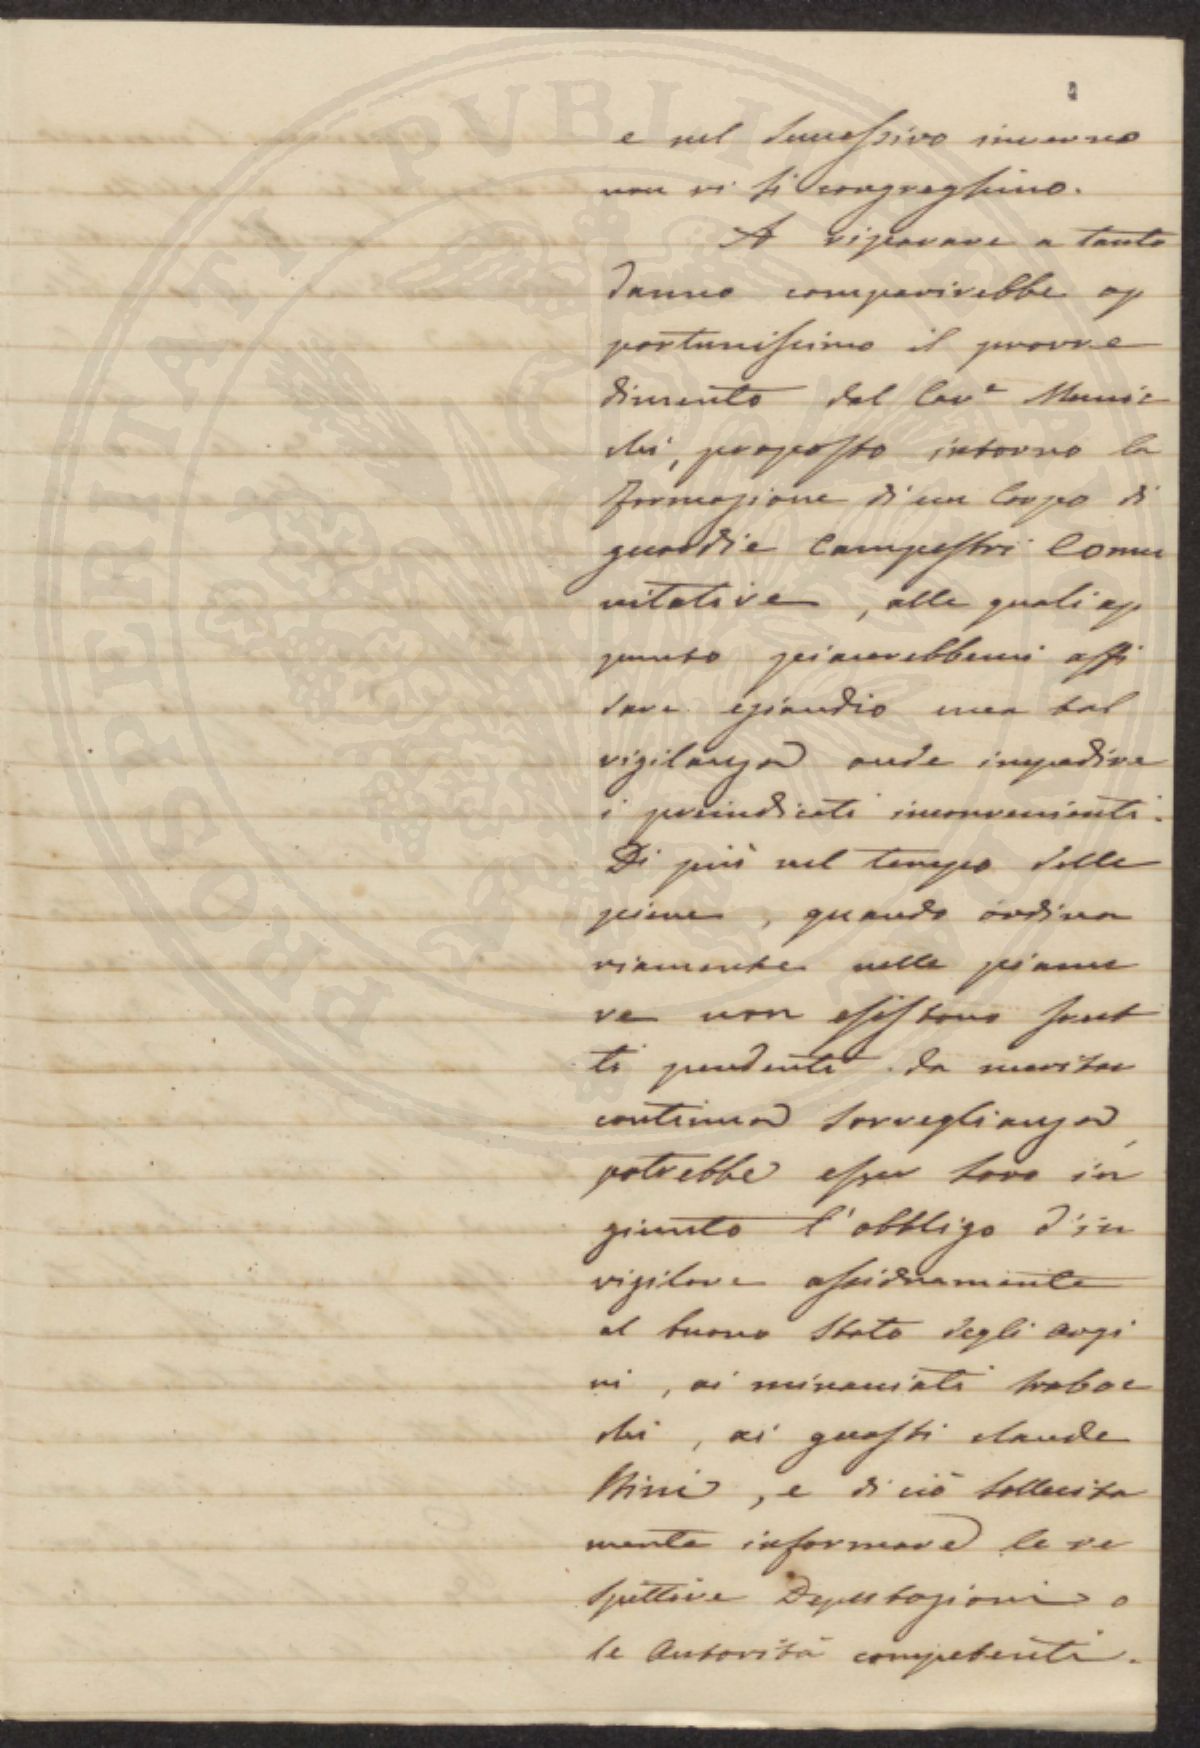 PROSPERITATI PVBLICAE
e nel successivo inverno
non vi si congreghino.
A riparare a tanto
danno comparirebbe op
portunissimo il provve
dimento dal Cav.e
chi, proposto intorno la
formazione di un Corpo di
guardie Campestri Comu
nitative, alle quali ap
punto piacerebbemi affi
dare eziandio una tal
vigilanza onde impedire
i preindicati inconvenienti.
Di più nel tempo delle
piene, quando ordina
riamente nelle pianu
re non esistono frut
ti pendenti da meritar
continua sorveglianza,
potrebbe esser loro in
giunto l'obbligo d'in
vigilare assiduamente
al buono stato degli argi
ni, ai minacciati traboc
chi, ai guasti clande
stini, e di ciò sollecita
mente informare le re
spettive Deputazioni o
le Autorità competenti.